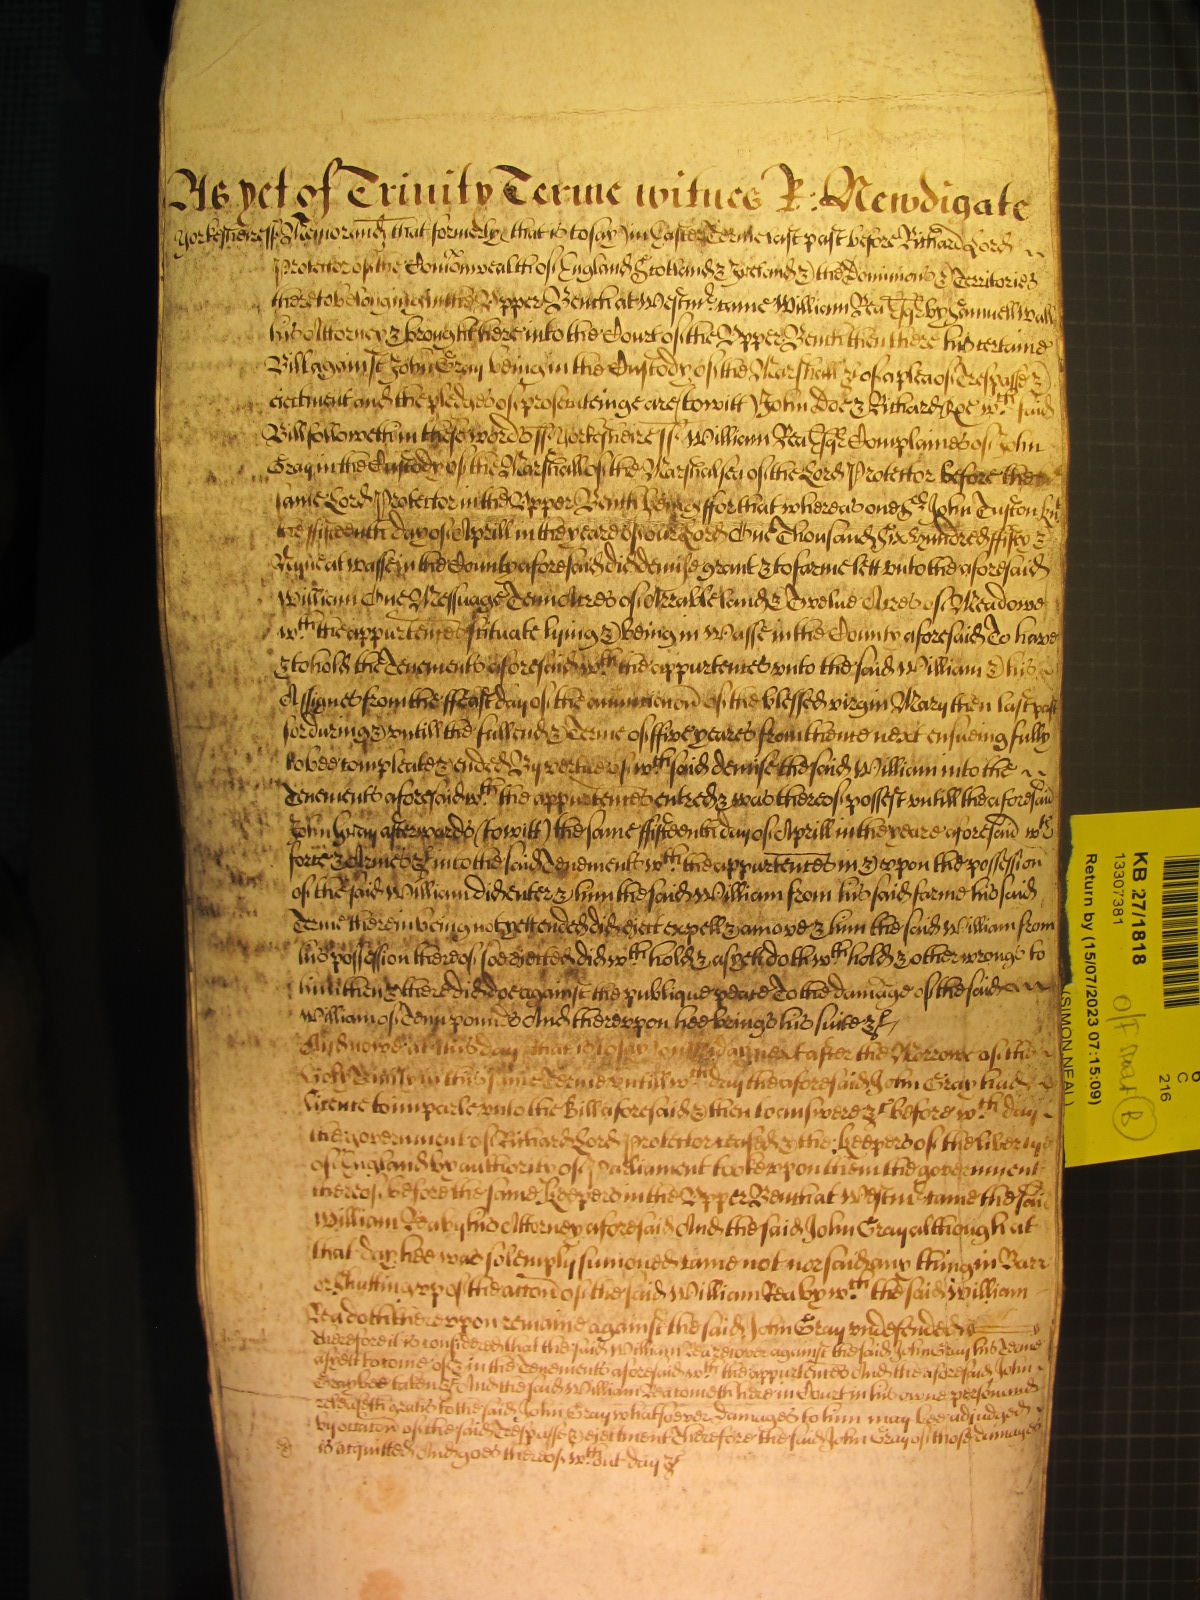 As yet of Trinity Terme witnes R: Newdigate
Yorkesheire ss Memorand that formerly (that is to say) in Easter Terme last past before Richard Lord
Protector of the Comonwealth of England Scotland & Ireland & the Dominions & Territories
thereto belonging in the Upper Bench at Westmr came William Rea Esqr by Samuell Wall
his Attorney & brought here into the Court of the Upper Bench then there his certaine
Bill against John Gray being in the Custody of the Marshall &c of a plea of Trespasse &
eiectment and the pledges of prosecuteinge are (to witt) John Doe & Richard Roe wch said
Bill followeth in these words ss Yorkesheire ss William Rea Esqr Complaines of John
Gray in the Custody of the Marshall of the Marshalsea of the Lord Protector before the
same Lord Protector in the Upper Bench being ffor that whereas one Sr John Tufton Knt
the ffifteenth day of Aprill in the yeare of our Lord One Thousand Six hundred ffifty &
Nyne at Wasse in the County aforesaid did demise grant & to farme lett unto the aforesaid
William One Messuage Tenn Acres of Arrable land & Twelve Acres of Meadowe
wth the appurtences scituate lying & being in Wasse in the County aforesaid To have
& to hold the Tenements aforesaid wth the appurtences unto the said William & his
Assignes from the ffeast day of the annunciacon of the blessed virgin Mary then last past
for during & untill the full end & Terme of ffive yeares from thence next ensueing fully
to bee compleate & ended By vertue of wch said demise the said William into the
Tenements aforesaid wth the appurtences entred & was thereof possest untill the aforesaid
John Gray afterwards (to witt) the same ffifteenth day of Aprill in the yeare aforesaid wth
force & Armes &c into the said Tenements wth the appurtences in & upon the possession
of the said William did enter & him the said William from his said farme his said
Terme therein being not yett ended did eiect expell & amove & him the said William from
his possession thereof soe eiected did wth hold & as yet doth wth hold & other wrongs to
him then & there did doe against the publique peace To the damage of the said
William of Tenn pounds And thereupon hee brings his suite &c
And nowe at this day that is to say on day next after the Morrowe of the
holy Trinity in this same Terme untill wch day the aforesaid John Gray had
licence to imparle unto the Bill aforesaid & then to answere &c before wch day
the government of Richard Lord Protector ceased & the Keepers of the liberty
of England by authority of Parliament tooke upon them the government
thereof before the same Keepers in the Upper Bench at Westmr came the said
William Rea by his Attorney aforesaid And the said John Gray although at
that day hee was solemply sumoned came not nor said any thing in Barr
or Shutting up of the accon of the said William Rea by wch the said William
Rea doth thereupon remaine against the said John Gray undefended
Therefore it is considered that the said William Rea recover against the said John Gray his Terme
as yett to come of & in the Tenements aforesaid wth the appurtences And the aforesaid John
Gray bee taken &c And the said William Rea cometh here in Court in his owne person and
releaseth gratis to the said John Gray whatsoever damages to him may bee adjudged
by occacon of the said Trespasse & eiectment Therefore the said John Gray of those damages
is acquitted And goes thereof wthout day &c
KB 27/1818
13307381
Return by (15/07/2023 07:15:09)
(SIMON NEAL)
C
216
B